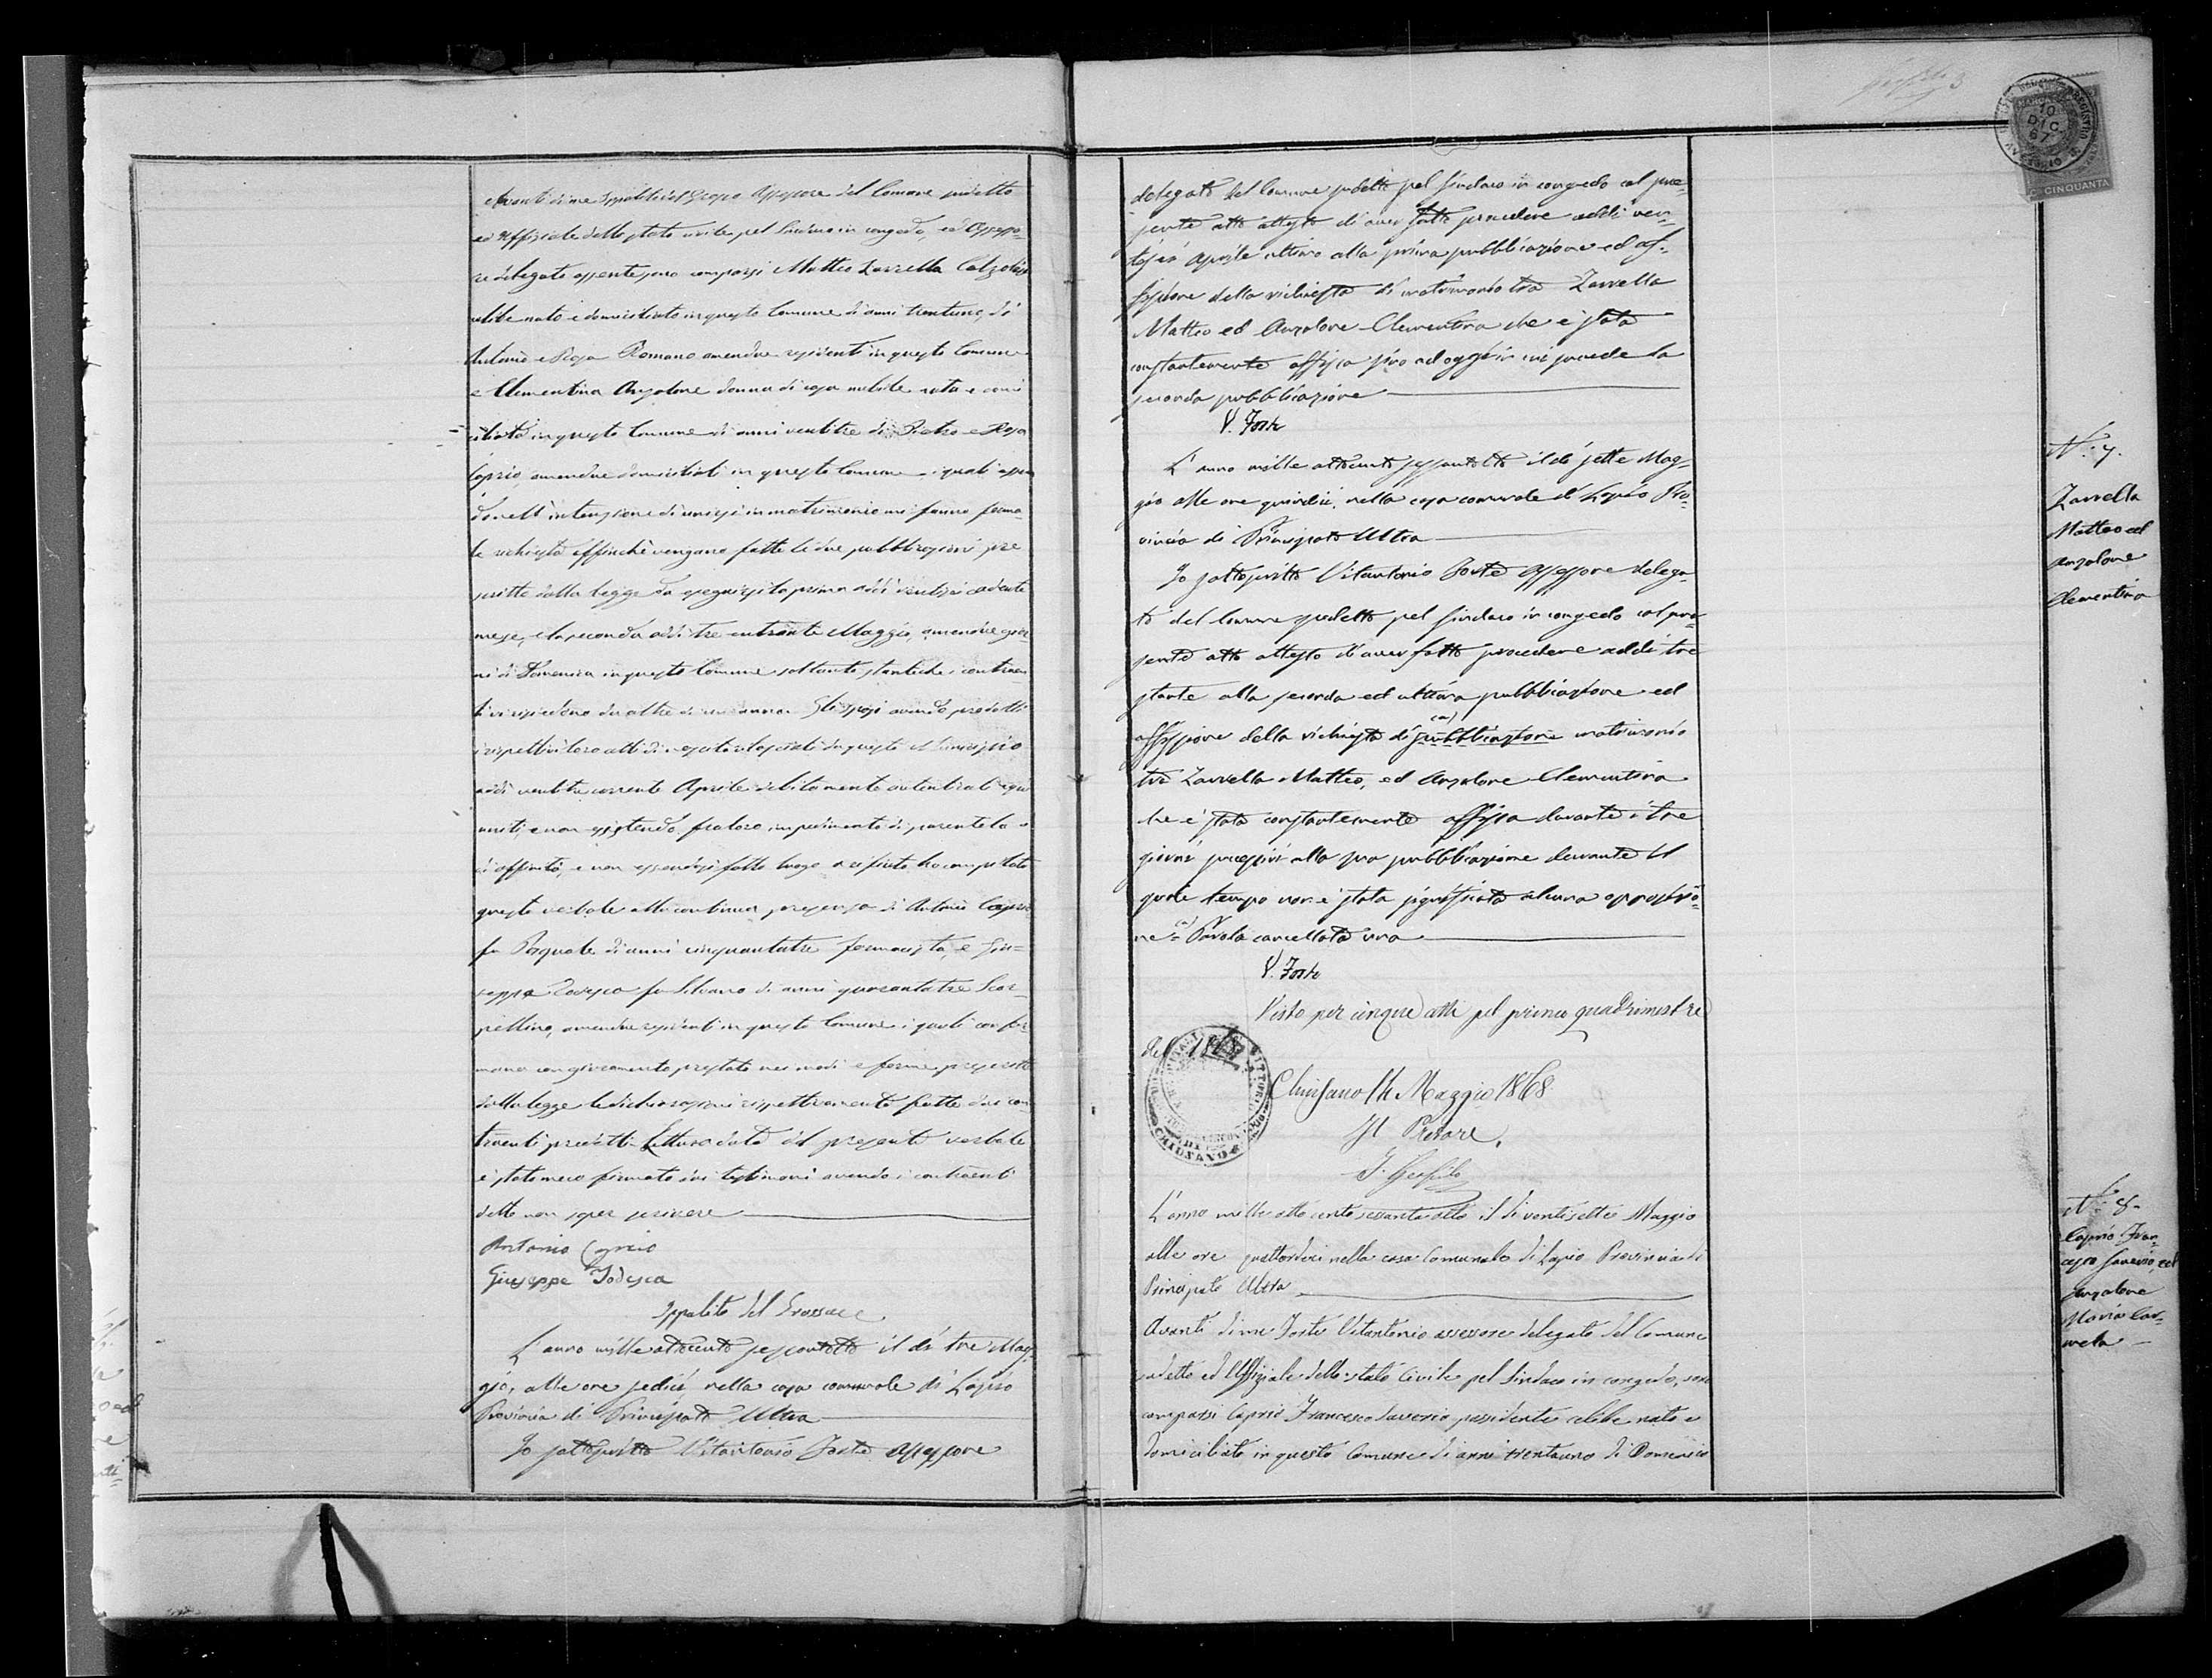 Avanti di me Ippolito del Grosso Assessore del Comune sudetto
ed Uffiziale dello stato civile pel Sindaco in congedo, ed Assesso-
re delegato assente, sono comparsi Matteo Zarrella Calzolaio
celibe nato e domiciliato in questo Comune di anni trentuno, di
Antonio e Rosa Romano amendue residenti in questo Comune
e Clementina Anzalone donna di casa nubile nata e domi
ciliata in questo Comune di anni ventitre di Pietro e Rosa
Caprio amendue domiciliati in questo Comune i quali
intenzione di unirsi in matrimonio mi fanno forma-
le richiesta affinchè vengano fatte le due pubblicazioni pre
scritte dalla legge da eseguirsi la prima addì ventisei cadente
mese, e la seconda addì tre entrante Maggio, amendue gior-
ni di Domenica in questo Comune soltanto stantechè i contraen
ti vi risiedono da oltre di un anno. Gli sposi avendo prodotti
i rispettivi loro atti di nascita rilasciati da questo Municipio
addì ventitre corrente Aprile debitamente autenticati qui
uniti, e non esistendo fra loro impedimento di parentela o
di affinità, e non essendosi fatto luogo a rifiuto ho compilato
questo verbale alla continua presenza di Antonio Caprio
fu Pasquale di anni cinquantatre farmacista, e Giu-
seppe Todesca fu Silvano di anni quarantatre Scar-
pellino, amendue residenti in questo Comune i quali confer
mano con giuramento prestato nei modi e forme prescritte
dalla legge le dichiarazioni rispettivamente fatte dai con-
traenti predetti. Lettura data del presente verbale
è stato meco firmato dai testimoni avendo i contraenti
detto non saper scrivere
Antonio Caprio
Giuseppe Todesca
Ippolito del Grosso
L'anno mille ottocento sessantotto il dì tre Mag-
gio, alle ore sedici, nella casa comunale di Lapio
Provincia di Principato Ultra
Io sottoscritto Vitantonio Forte Assessore
C. CINQUANTA
10
DIC.
67
delegato del Comune sudetto pel Sindaco in congedo col pre-
sente atto attesto di aver fatto procedere addì ven-
tisei Aprile ultimo alla prima pubblicazione ed af-
fissione della richiesta di matrimonio tra Zarrella
Matteo ed Anzalone Clementina che è stata
constantemente affissa sino ad oggi in cui procede la
seconda pubblicazione
V. Forte
N.° 7.
Zarrella
Matteo ed
Anzalone
Clementina
L'anno mille ottocento sessantotto il dì sette Mag-
gio alle ore quindici, nella casa comunale di Lapio Pro-
vincia di Principato Ultra
Io sottoscritto Vitantonio Forte Assessore delega-
to del Comune sudetto pel Sindaco in congedo col pre-
sente atto attesto di aver fatto procedere addì tre
stante alla seconda ed ultima pubblicazione ed
affissione della richiesta di pubblicazione matrimonio
tra Zarrella Matteo, ed Anzalone Clementina
che è stata constantemente affissa durante i tre
giorni successivi alla sua pubblicazione durante il
quale tempo non è stata significata alcuna opposizio-
ne = Parola cancellata una
V. Forte
Visto per cinque atti pel primo quadrimestre
del 1868
Chiusano 14 Maggio 1868
Il Pretore
CHIUSANO
N.° 8.
Caprio Fran-
cesco Saverio, ed
Anzalone
Maria Car-
mela
L'anno mille ottocento sessantotto il dì ventisette Maggio
alle ore quattordici nella casa Comunale di Lapio Provincia di
Principato Ultra
Avanti di me Forte Vitantonio assessore delegato del Comune
sudetto ed Uffiziale dello stato Civile pel Sindaco in congedo, sono
comparsi Caprio Francesco Saverio possidente celibe nato e
domiciliato in questo Comune di anni trentauno di Domenico